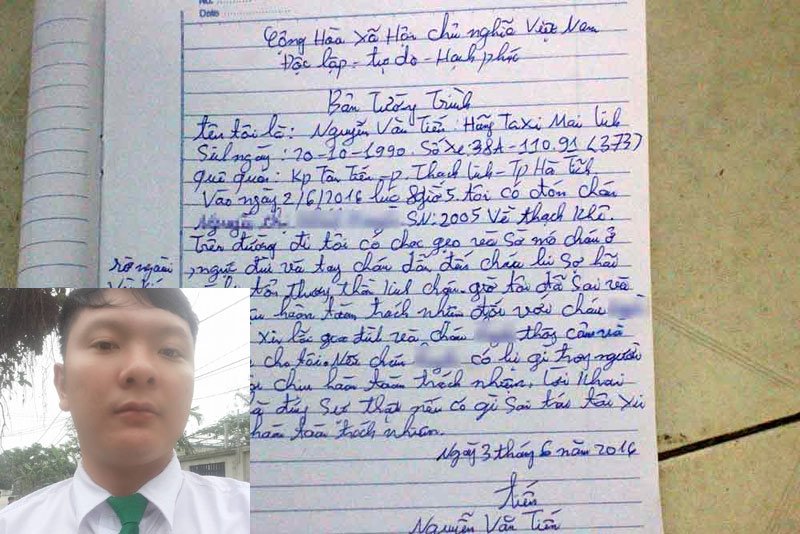 No.
Date
Cộng Hòa Xã Hội chủ nghĩa Việt Nam
Độc lập - tự do - Hạnh phúc
Bản Tường Trình
tên tôi là: Nguyễn Văn Tiến: Hãng Taxi Mai Linh
Sinh ngày: 20-10-1990 Số Xe: 38A-110.91 (373)
quê quán: Kp Tân Tiến - p. Thạch Linh - Tp Hà Tĩnh
Vào ngày 2/6/2016 lúc 8giờ 5. tôi có đón cháu
Nguyễn SN: 2005 Về thạch Khê.
trên đường đi tôi có chọc gẹo và Sờ mó cháu ở
rõ người , ngực đùi và tay chân dẫn đến cháu bị Sợ hãi
tổn thương thân giờ tôi đã Sai và
hoàn toàn trách nhiệm đối với cháu
Xin lỗi gia đình và cháu thông cảm và
cho tôi. Nếu cháu có bị gì trong người
chịu hoàn toàn trách nhiệm, lời khai
là đúng Sự thật nếu có gì Sai trái tôi xin
hoàn toàn trách nhiệm.
Ngày 3 tháng 6 năm 2016
tiến
Nguyễn Văn Tiến